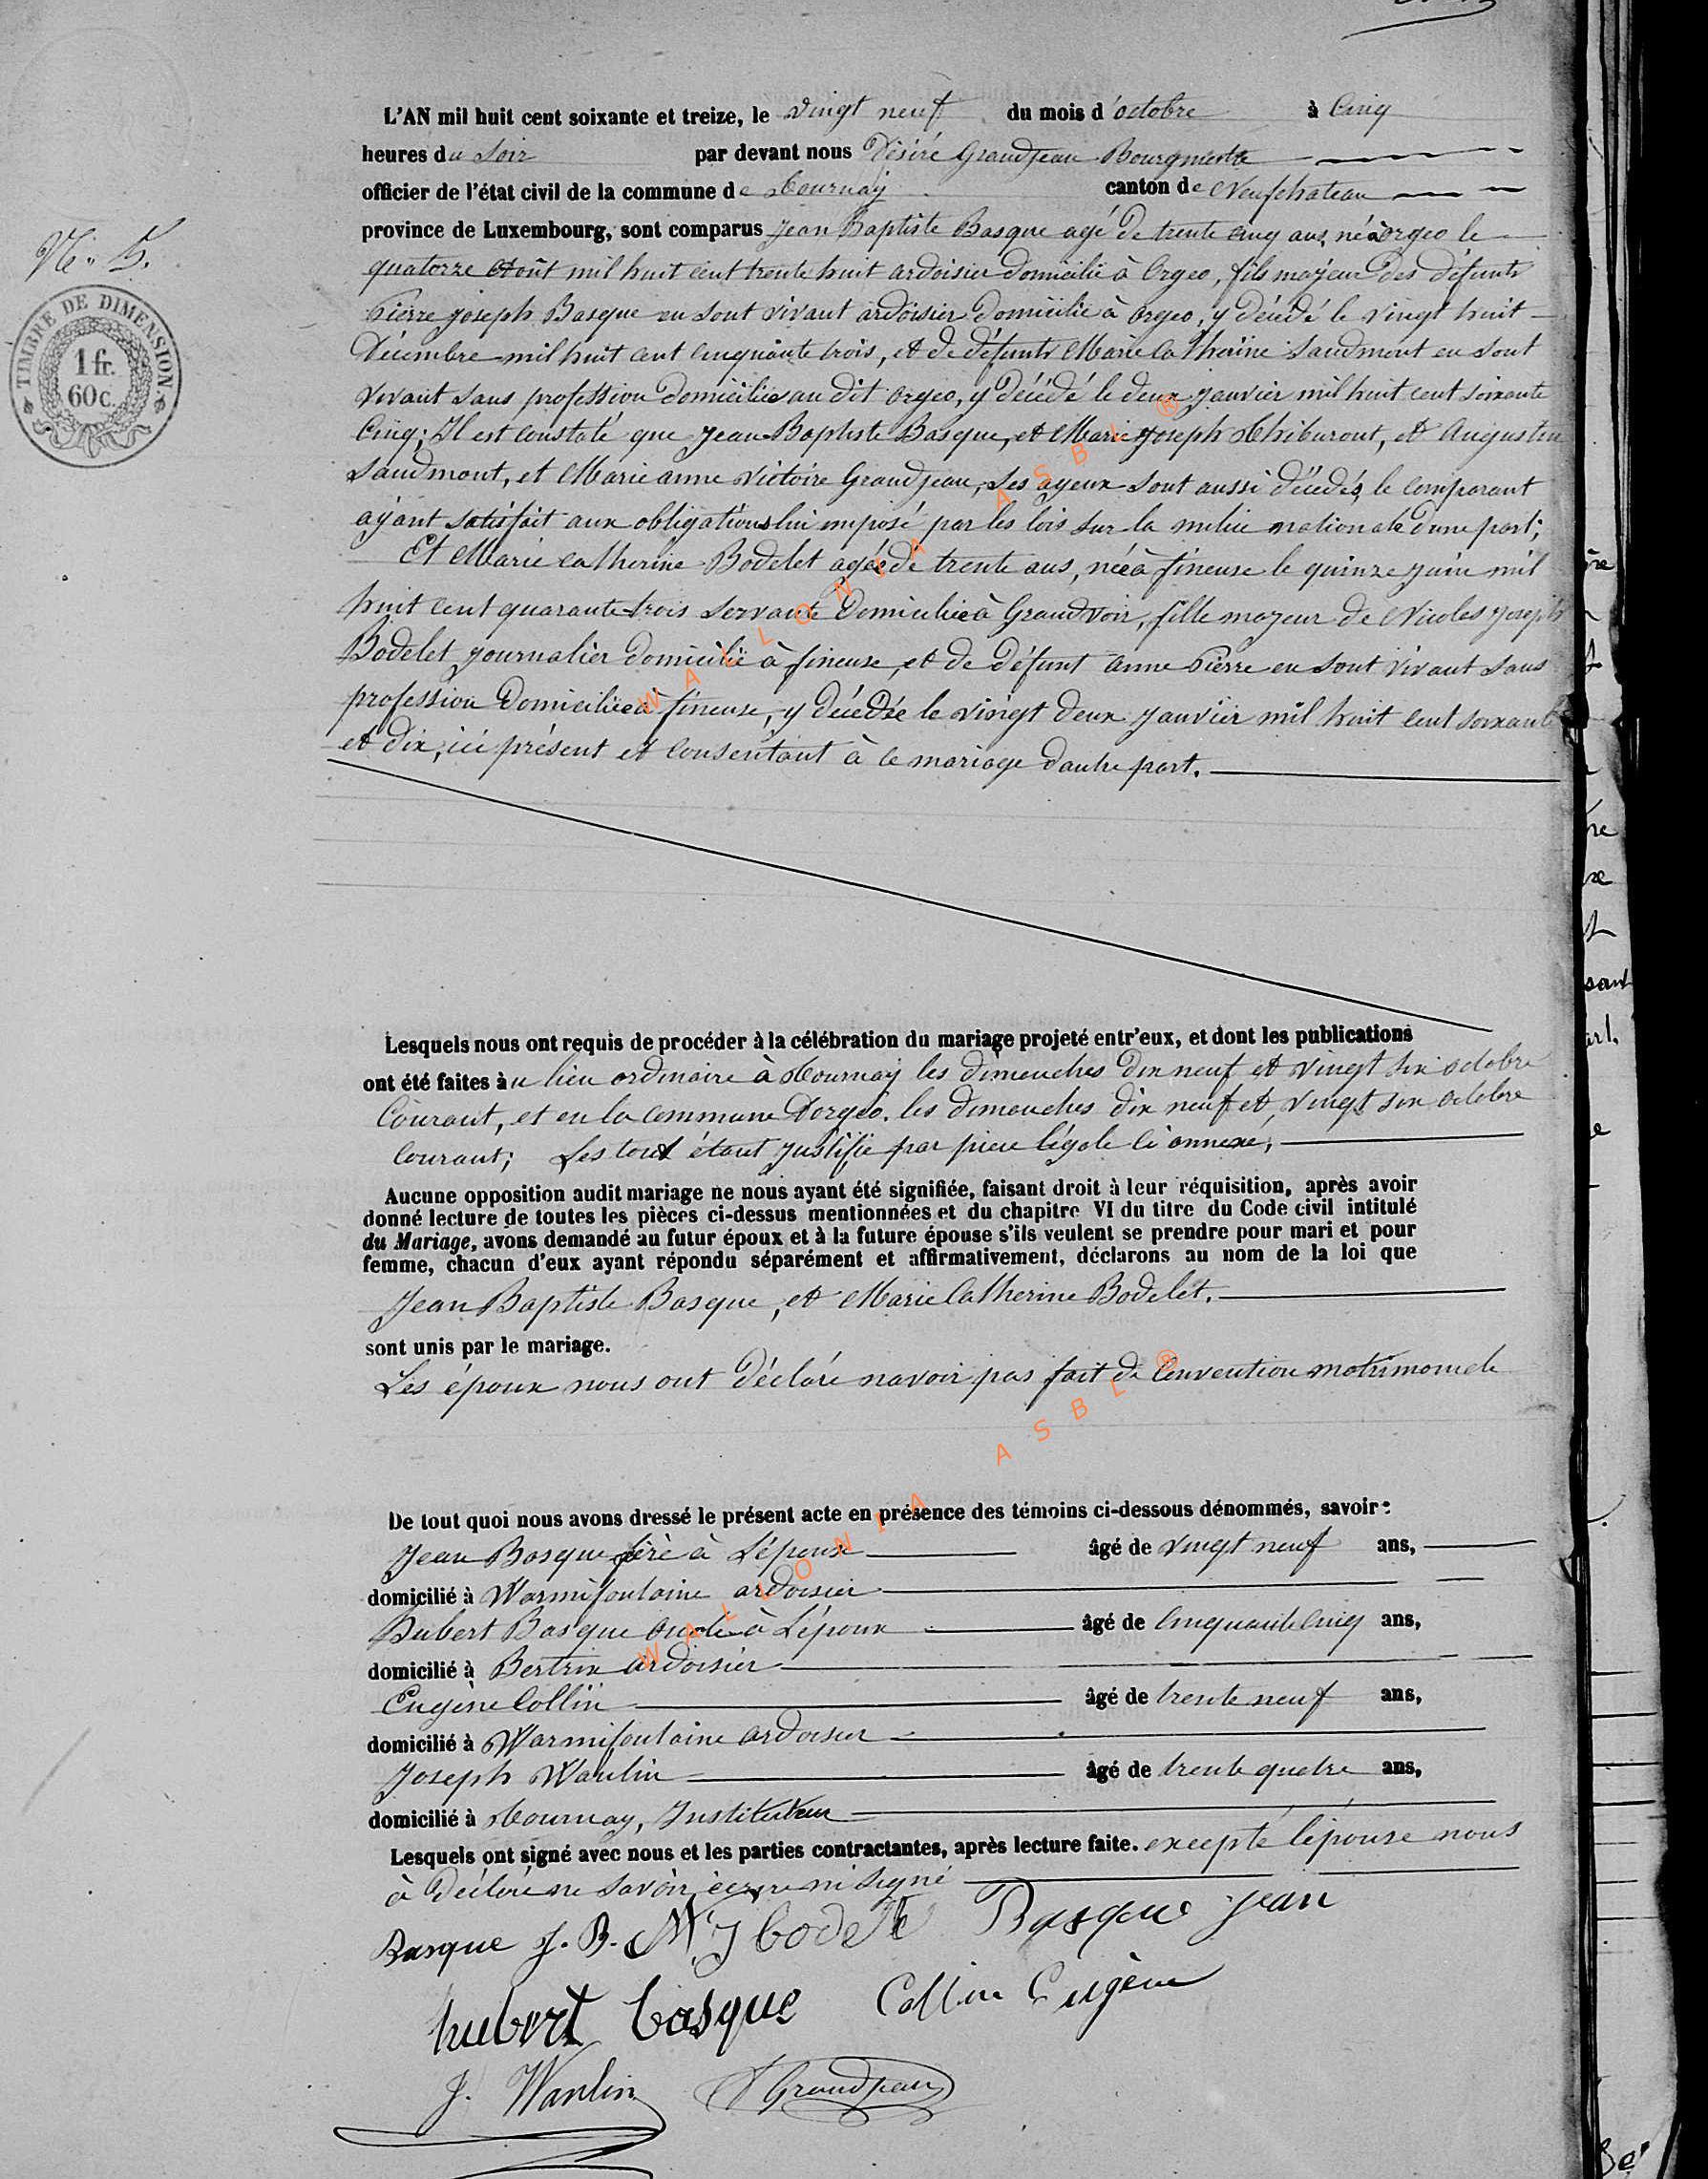 L'AN mil huit cent soixante et treize, le vingt neuf du mois d'octobre à Cinq
heures du Soir par devant nous Désiré Grandjean Bourgmestre
officier de l'état civil de la commune de Tournay canton de Neufchateau
province de Luxembourg, sont comparus Jean Baptiste Basque agé de trente cinq ans, né à orgeo le
N. 5.
quatorze Août mil huit cent trente huit ardoisier domicilié à Orgeo, fils majeur des défunts
TIMBRE DE DIMENSION
1 fr.
60c.
Pierre Joseph Basque en sont vivant ardoisier domicilié à orgeo, y décédé le vingt huit
Décembre mil huit cent cinquante trois, et de défunts Marie Catherine Saudmont en sont
vivant sans profession domiciliée au dit orgeo, y décédé le deux Janvier mil huit cent soixante
Cinq; Il est constaté que Jean Baptiste Basque, et Marie Joseph Thiburout, et Augustin
Saudmont, et Marie anne Victoire Grandjean, Ses ayeux sont aussi décédés, le comparant
ayant satisfait aux obligations lui imposé par les lois sur la milice nationale d'une part;
Et Marie Catherine Bodelet agée de trente ans, née à fineuse le quinze Juin mil
huit cent quarante trois Servante domiciliée à Grandvoir, fille majeur de Nicolas Joseph
Bodelet Journalier domicilié à fineuse, et de défunt anne Pierre en sont vivant sans
profession domiciliée à fineuse, y décédée le vingt deux Janvier mil huit cent soixante
et dix, ici présent et consentant à ce mariage dautre part.
Lesquels nous ont requis de procéder à la célébration du mariage projeté entr'eux, et dont les publications
ont été faites au lieu ordinaire à Tournay les dimenches dix neuf et vingt six octobre
Courant, et en la commune Dorgeo, les dimenches dix neuf et vingt six octobre
Courant; Les tout étant Justifié par piece légale ci annexé;
Aucune opposition audit mariage ne nous ayant été signifiée, faisant droit à leur réquisition, après avoir
donné lecture de toutes les pièces ci-dessus mentionnées et du chapitre VI du titre du Code civil intitulé
du Mariage, avons demandé au futur époux et à la future épouse s'ils veulent se prendre pour mari et pour
femme, chacun d'eux ayant répondu séparément et affirmativement, déclarons au nom de la loi que
Jean Baptiste Basque, et Marie Catherine Bodelet.
sont unis par le mariage.
Les époux nous ont déclaré navoir pas fait de Convention matrimoniale
De tout quoi nous avons dressé le présent acte en présence des témoins ci-dessous dénommés, savoir:
Jean Basque frère à Lépoux âgé de vingt neuf ans,
domicilié à Warmifontaine ardoisier
Hubert Basque oncle à Lépoux âgé de Cinquante Cinq ans,
domicilié à Bertrix ardoisier
Eugène Collin âgé de trente neuf ans,
domicilié à Warmifontaine ardoisier
Joseph Wanlin âgé de trente quatre ans,
domicilié à Tournay, Instituteur
Lesquels ont signé avec nous et les parties contractantes, après lecture faite. excepté lépouse nous
à déclaré ne savoir écrire ni signé
Basque J. B. N J bodele Basque Jean
hubert basque Collin Eugène
J. Wanlin D Grandjean
WALLONIA ASBL ®
WALLONIA ASBL ®